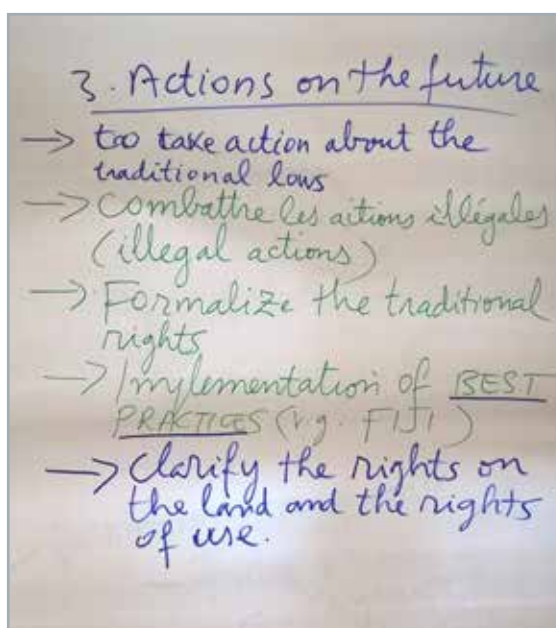 3. Actions on the future
→ too take action about the
traditional lows
→ Combatthe les actions illégales
(illegal actions)
→ Formalize the traditional
rights
→ Implementation of BEST
PRACTICES (v.g. FIJI)
→ Clarify the rights on
the land and the rights
of use.